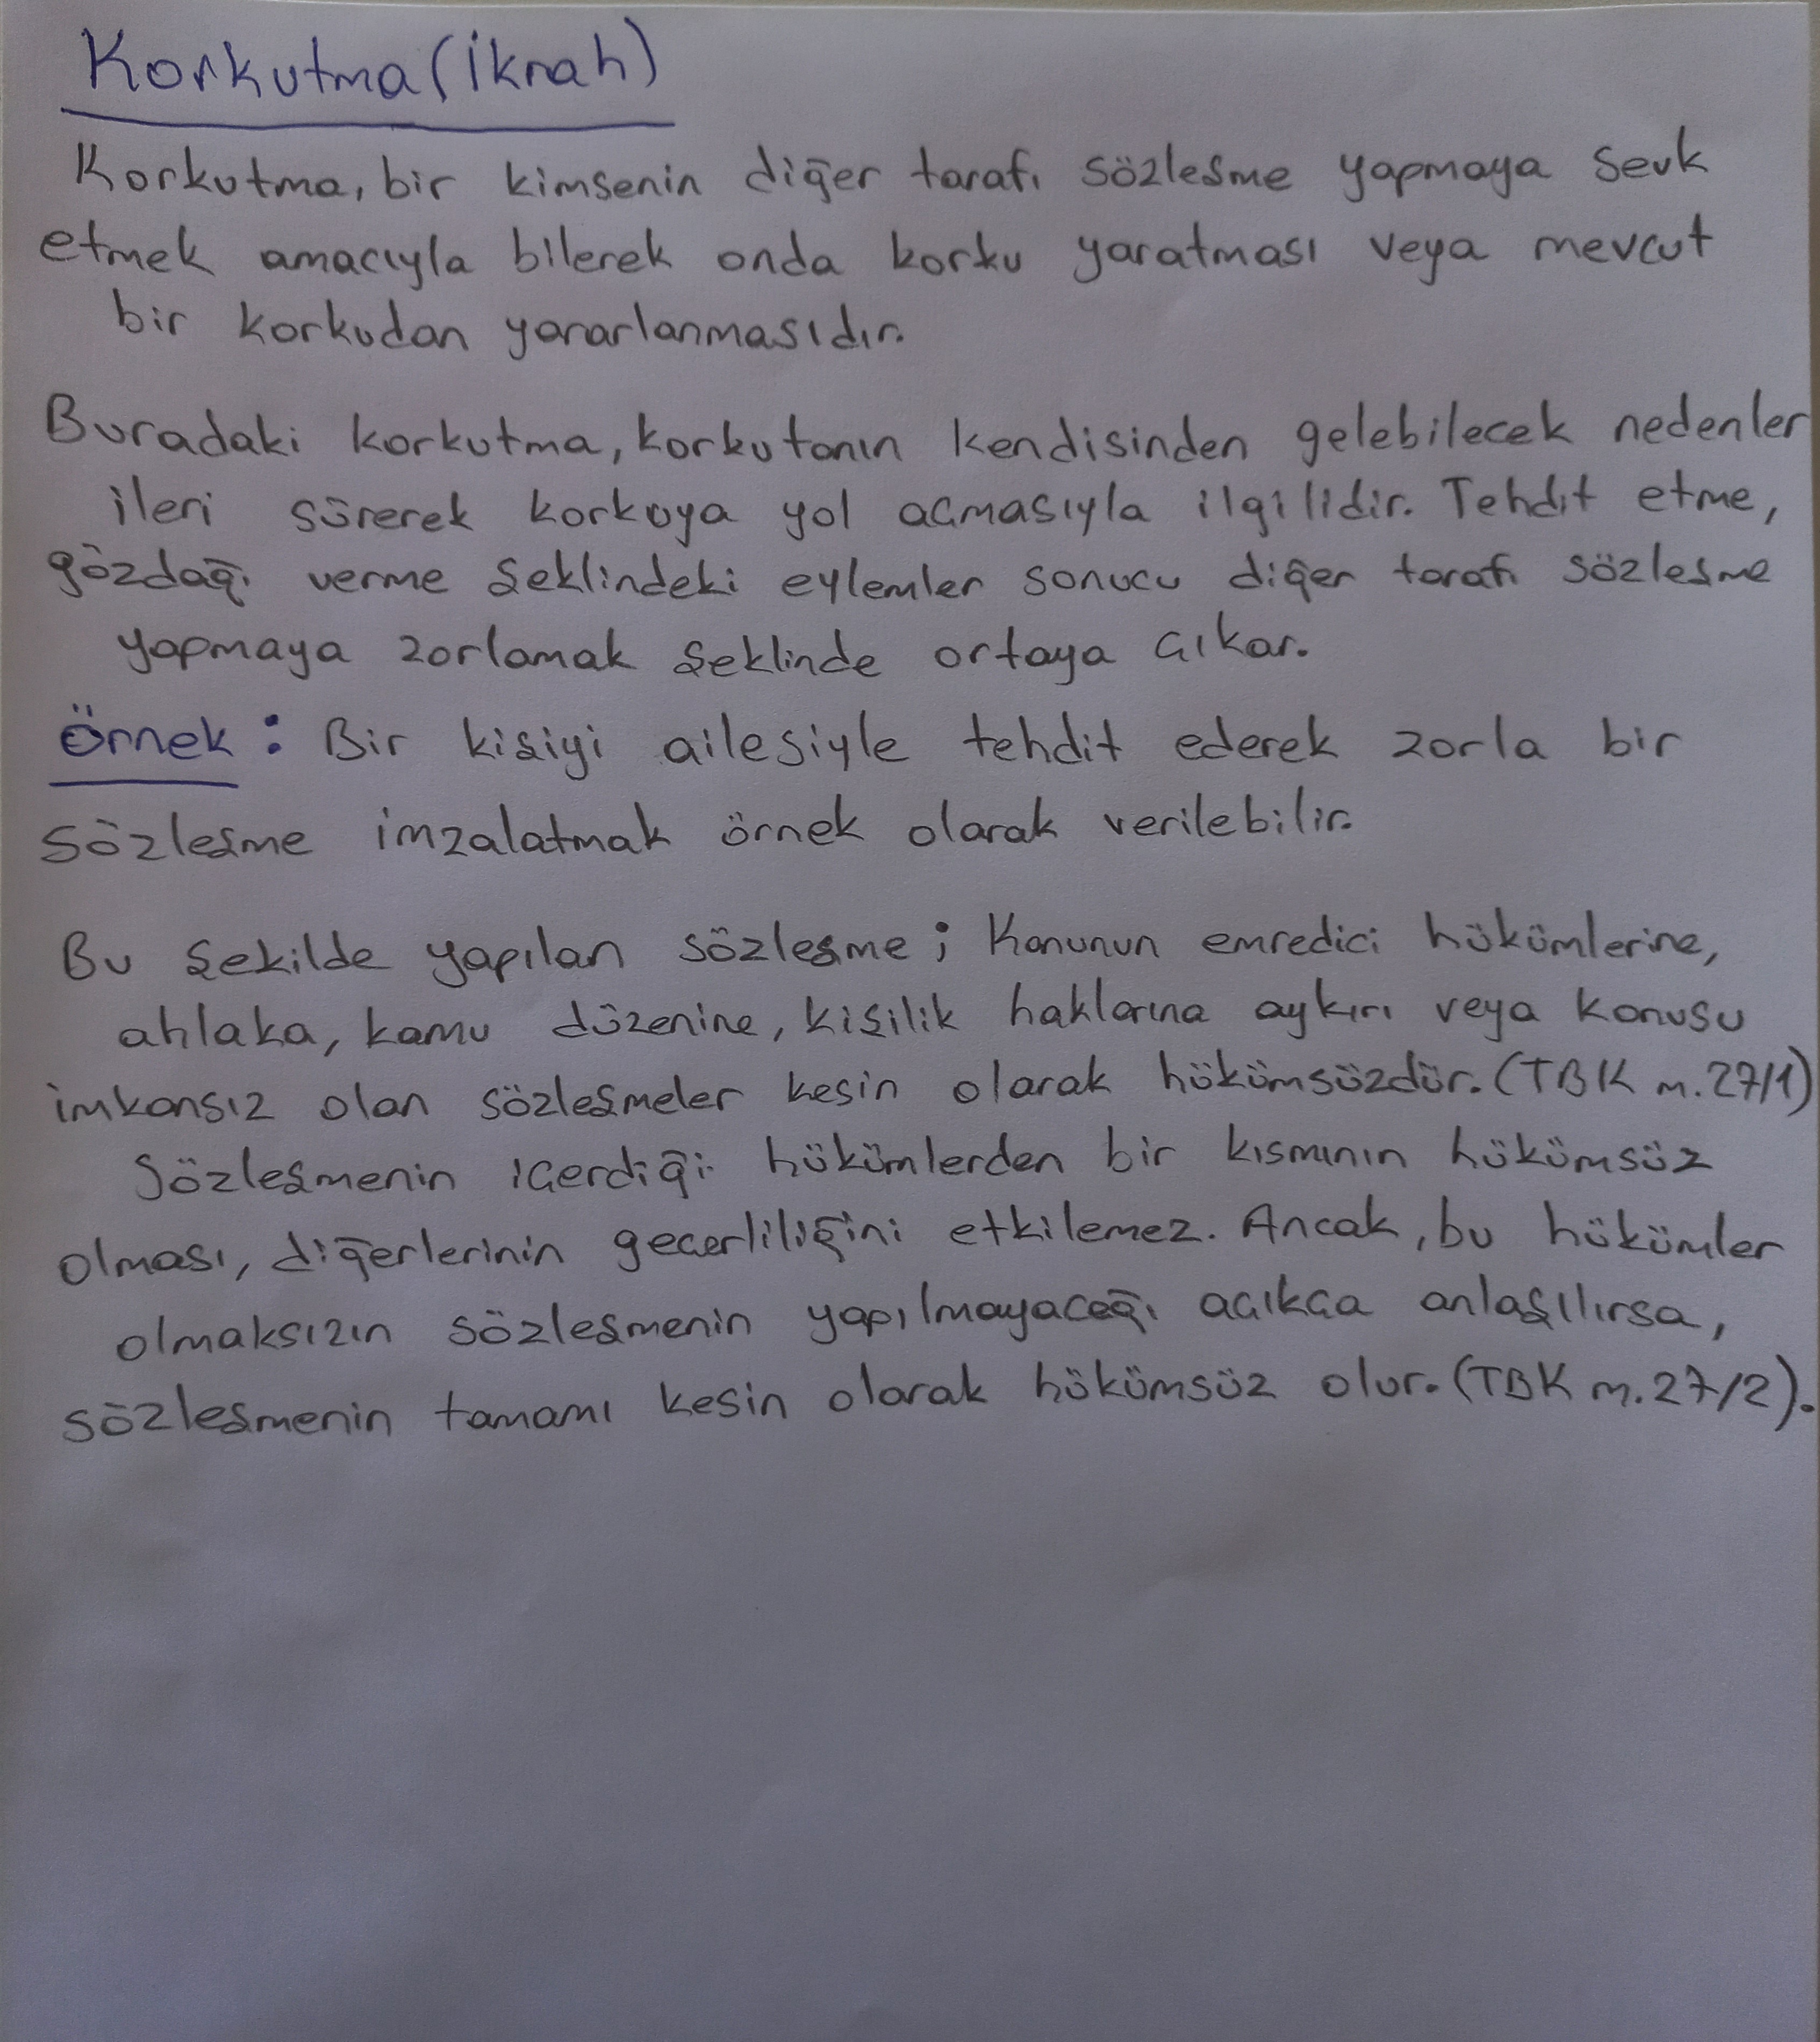 Korkutma (İkrah)
Korkutma, bir kimsenin diğer tarafı sözleşme yapmaya sevk
etmek amacıyla bilerek onda korku yaratması veya mevcut
bir korkudan yararlanmasıdır.
Buradaki korkutma, korkutanın kendisinden gelebilecek nedenler
ileri sürerek korkuya yol açmasıyla ilgilidir. Tehdit etme,
gözdağı verme şeklindeki eylemler sonucu diğer tarafı sözleşme
yapmaya zorlamak şeklinde ortaya çıkar.
Örnek : Bir kişiyi ailesiyle tehdit ederek zorla bir
sözleşme imzalatmak örnek olarak verilebilir.
Bu şekilde yapılan sözleşme ; Kanunun emredici hükümlerine,
ahlaka, kamu düzenine, kişilik haklarına aykırı veya konusu
imkansız olan sözleşmeler kesin olarak hükümsüzdür. (TBK m.27/1)
Sözleşmenin içerdiği hükümlerden bir kısmının hükümsüz
olması, diğerlerinin geçerliliğini etkilemez. Ancak, bu hükümler
olmaksızın sözleşmenin yapılmayacağı açıkça anlaşılırsa,
sözleşmenin tamamı kesin olarak hükümsüz olur. (TBK m.27/2).